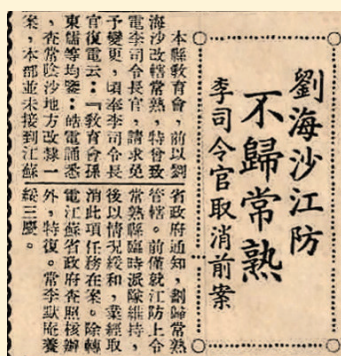 劉海沙江防
不歸常熟
李司令官取消前案
本縣敎育會,前以劉
海沙改轄常熟,特曾致
電李司令長官,請求免
予變更,頃奉李司令長
官復電云:『敎育會孫
東儒等均鑒:皓電誦悉
,查常陰沙地方改隸一
案,本部並未接到江蘇
省政府通知,劃歸常熟
管轄。前僅就江防上令
常熟縣臨時派隊維持,
後以情況緩和,業經取
消此項任務在案。除轉
電江蘇省政府查照核辦
外,特復。常李默庵養
綏三慶。